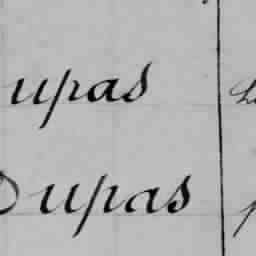 upas
Dupas